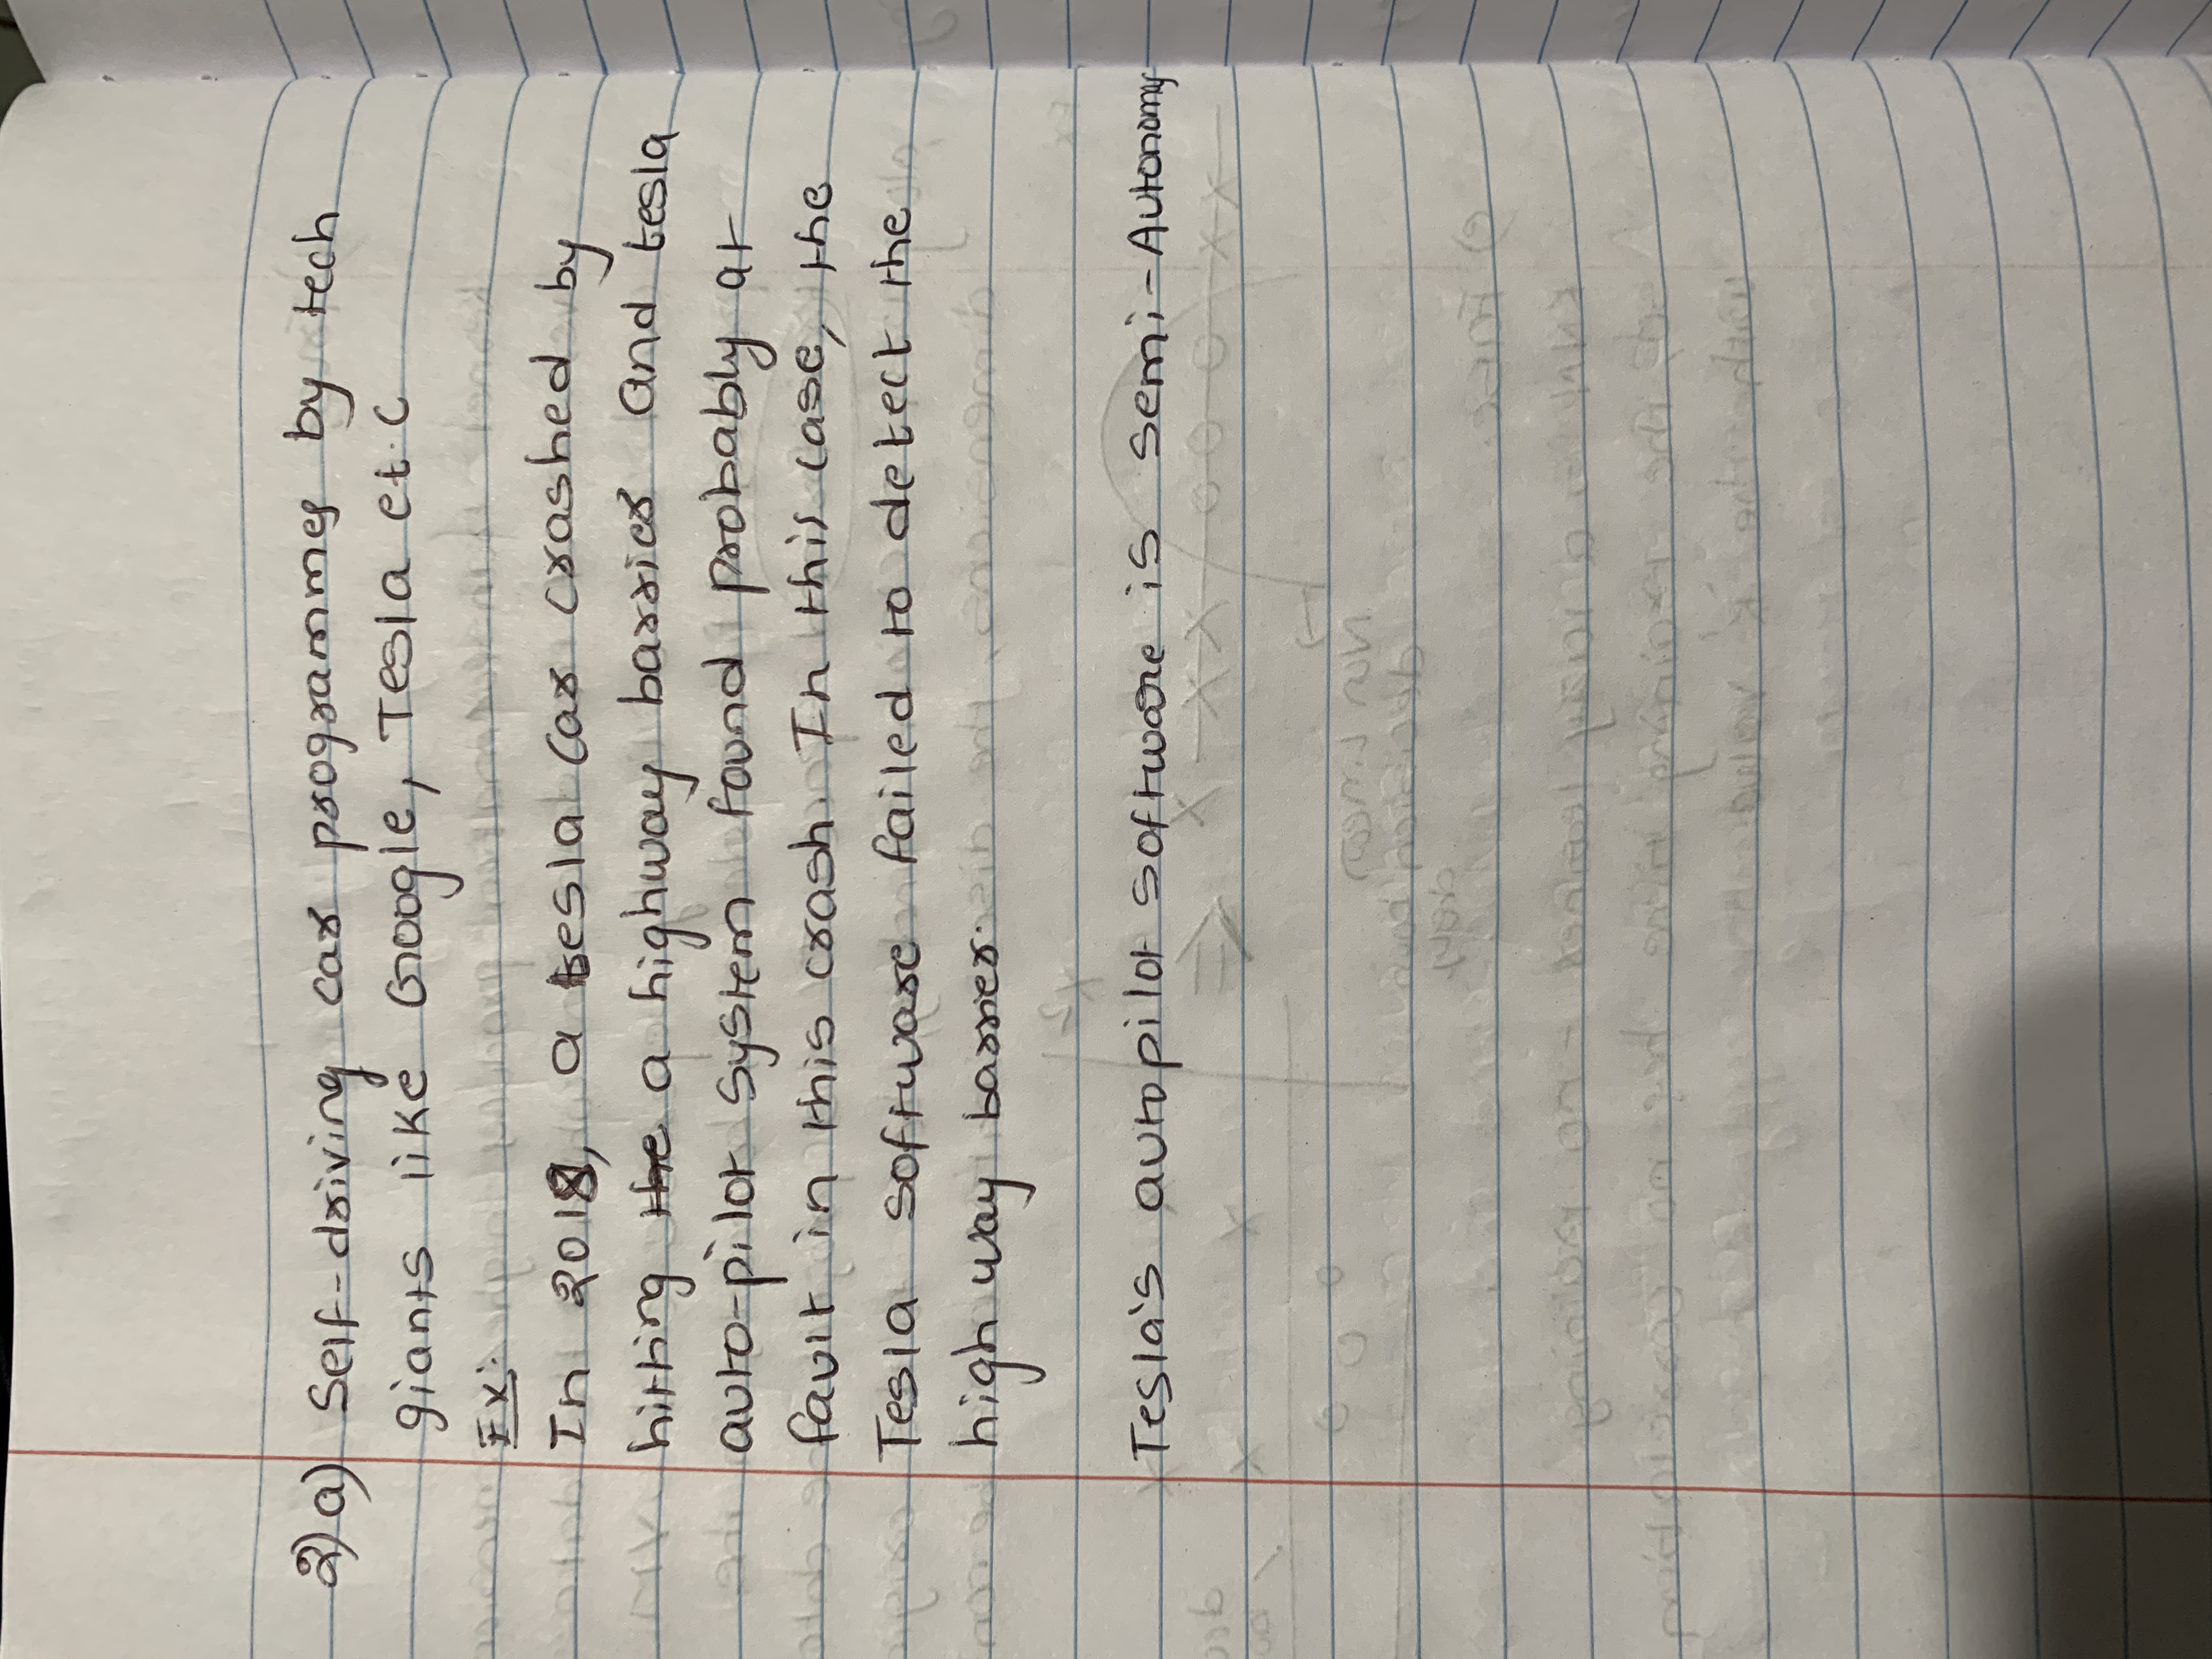 2) a) Self-driving car programmes by tech
giants like Google, Tesla et.c
Ex:
In 2018, a tesla car crashed by
hitting the a highway barrier and tesla
auto-pilot system found probably at
fault in this crash. In this case, the
Tesla software failed to detect the
high way barrier.
Tesla's autopilot software is semi-Autonomy